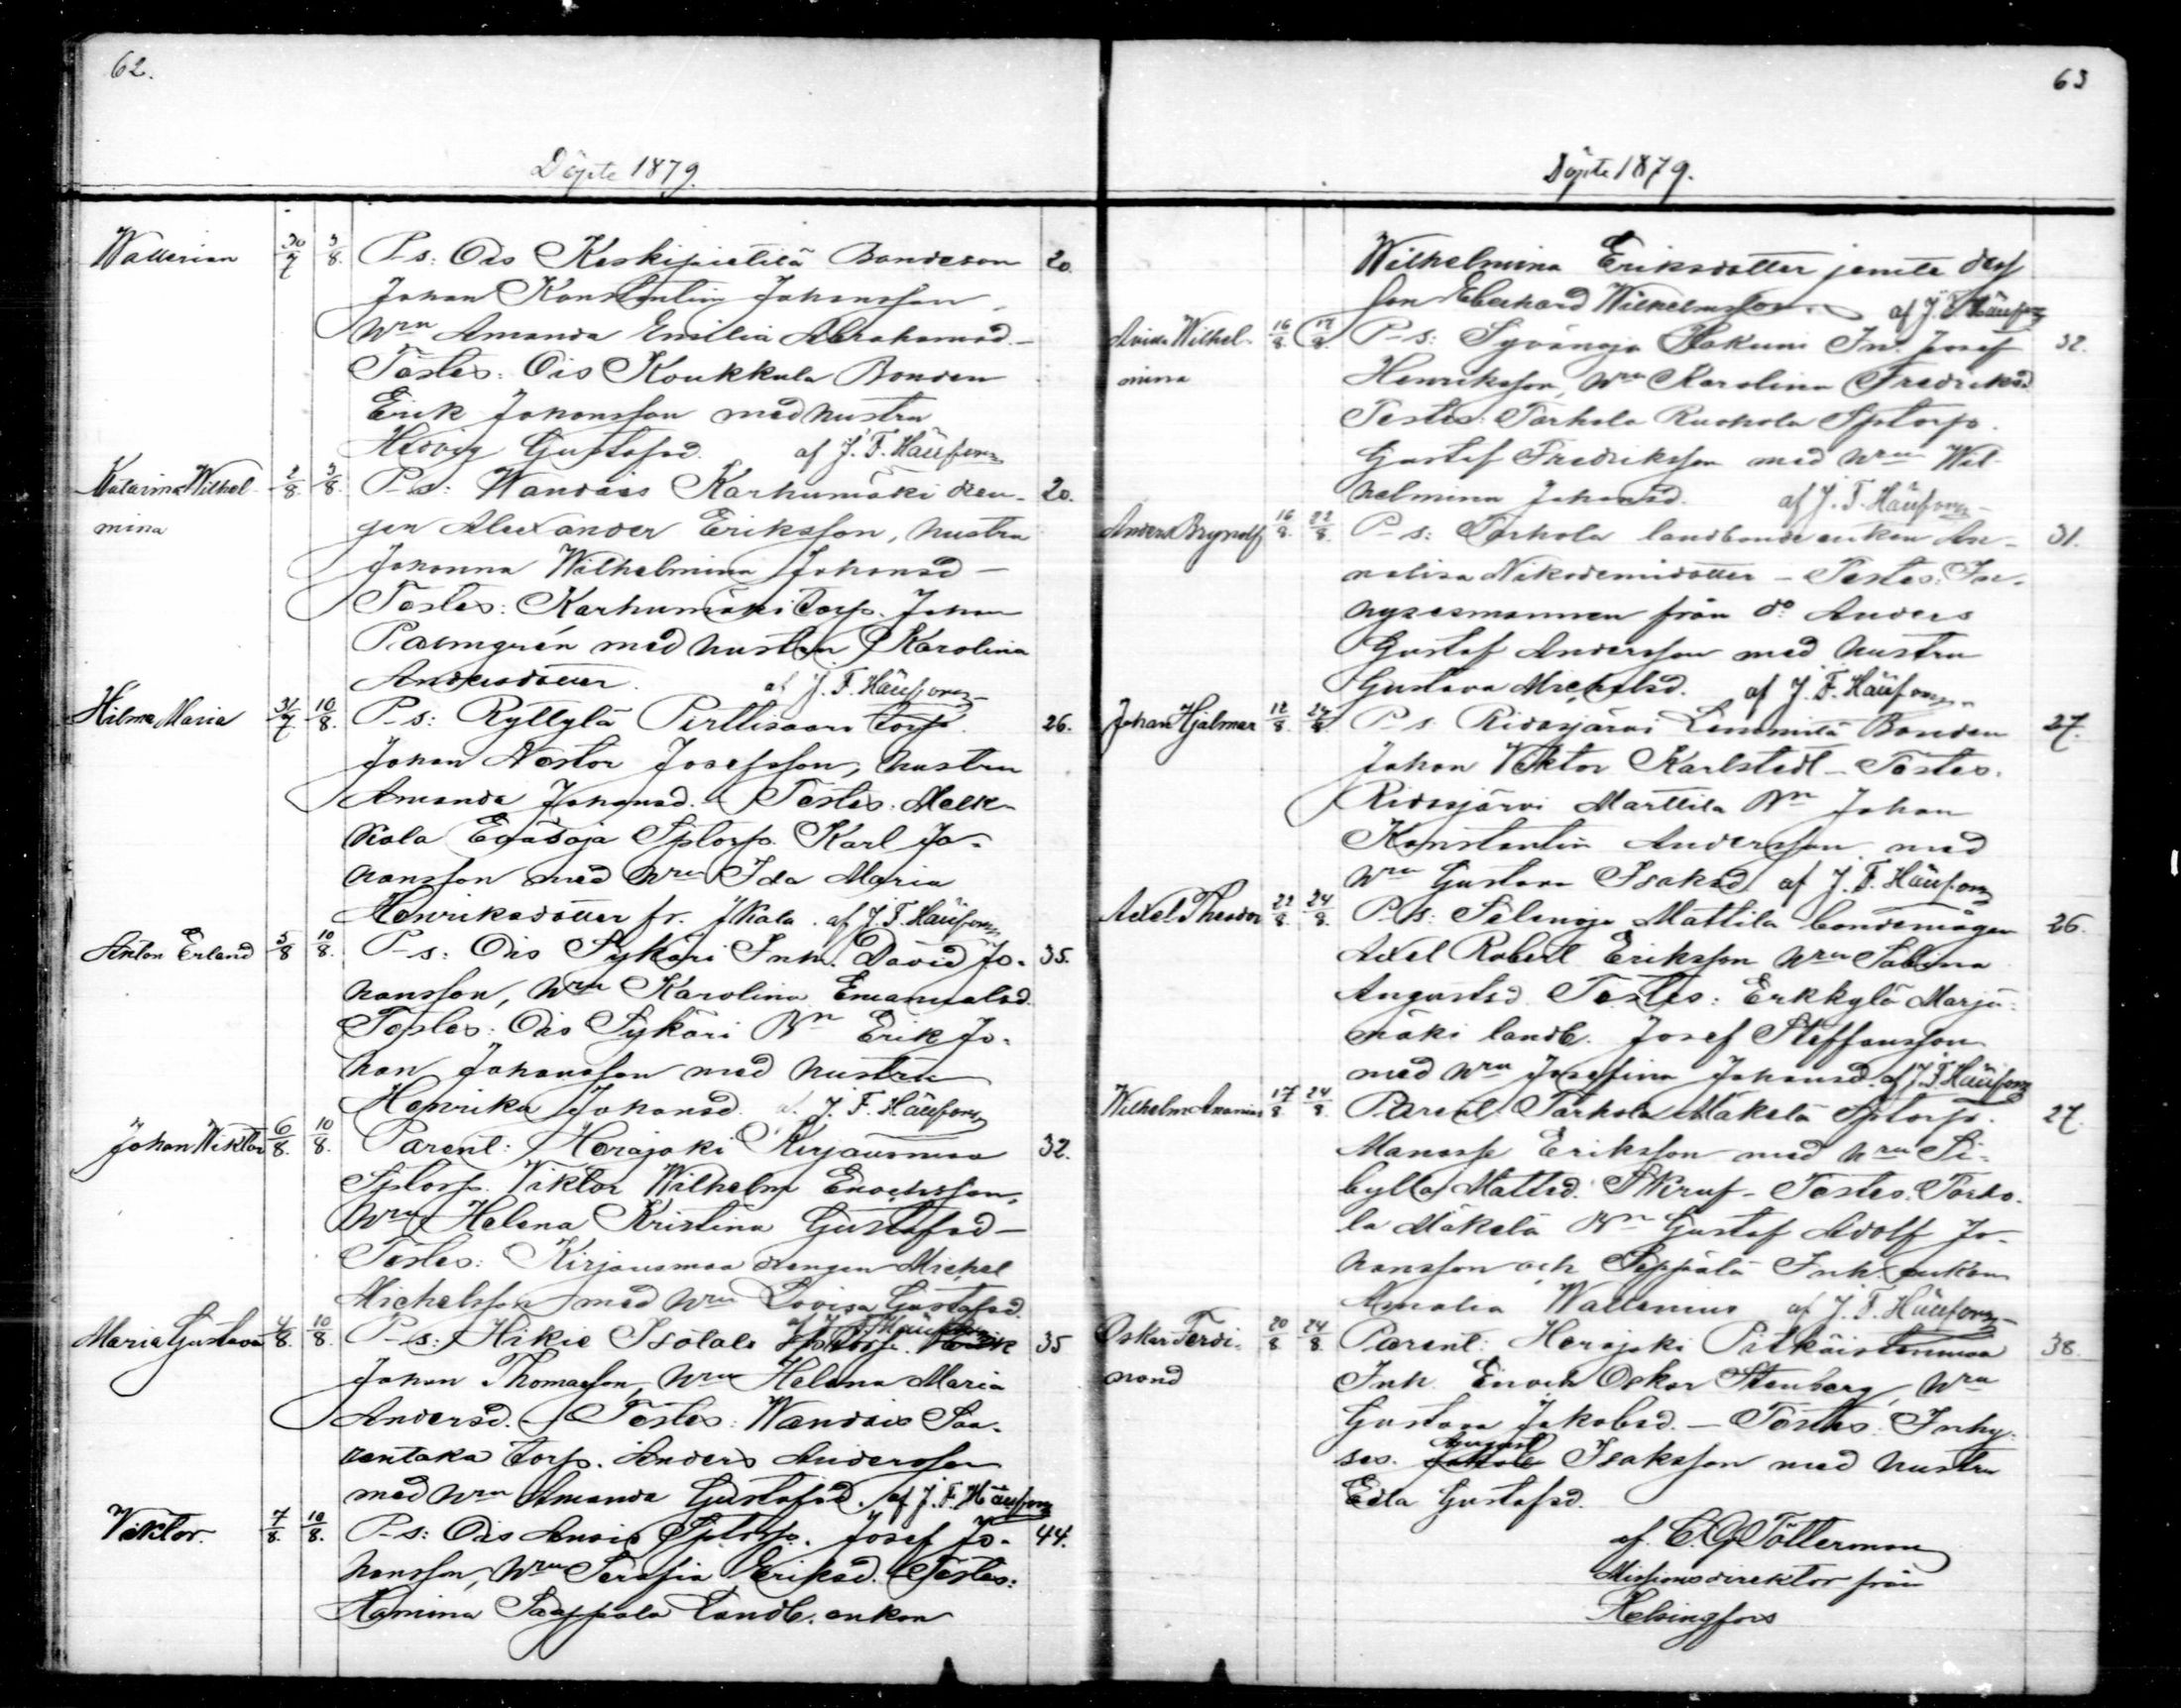 62.
Döpte 1879.
Wallerian 30/7 3/8. P-s: Ois Keskipietilä Bondeson 20.
Johan Konstantin Johansson,
Hrn Amanda Emilia Abrahamsd. -
Testes: Ois Koukkula Bonden
Erik Johansson med hustru
Hedvig Gustafsd. af J. F. Häufsonn
Katarina Wilhel- 2/8. 3/8. P-s: Wandais Karhumäki dren- 20.
mina gen Alexander Eriksson, hustru
Johanna Wilhelmina Johansd -
Testes: Karhumäki Torp. Johan
Palmgrén med hustru Karolina
Andersdotter. af J. F. Häufsonn
Hilma Maria 31/7. 10/8. P-s: Ryttylä Perttisaari Torp. 26.
Johan Nestor Josefsson, hustru
Amanda Johansd. - Testes: Melk-
kola Eräsoja Sptorp. Karl Jo-
hansson med Hru Ida Maria
Henriksdotter fr. Jkala. af J. F. Häufsonn
Anton Erland 5/8 10/8. P-s: Ois Sykäri Inh. David Jo- 35.
hansson, Hru Karolina Emanuelsd.
Testes: Ois Sykäri Bn Erik Jo-
han Johansson med hustru
Henrika Johansd. af J. F. Häufsonn
Johan Wiktor 6/8. 10/8. Parent: Herajoki Kirjausmaa 32.
Sptorp. Viktor Wilhelm Enochsson,
Hru Helena Kristina Gustafsd -
Testes: Kirjausmaa drengen Michel
Michelsson med Hru Lovisa Gustafsd.
af J. F. Häufsonn
Maria Gustava 4/8. 10/8. P-s: Hikiä Isotalo 35
Johan Thomasson, Hru Helena Maria
Andersd. - Testes: Wandais Saa-
rentaka Torp. Anders Andersson
med Hru Amanda Gustafsd. af J. F. Häufsonn
Viktor. 7/8. 10/8. P-s: Ois Anois Sptorp. Josef Jo- 44.
hansson, Hru Serafia Eriksd. Testes:
Hamina Saappala Landb. enkan
63
Döpte 1879.
Wilhelmina Eriksdotter jemte dess
son Eberhard Wilhelmsson. af J. F. Häufsonn
Arida Wilhel- 16/8. 17/8. P-s: Syvänoja Hakuni Inh. Josef 32.
mina Henriksson, Hru Karolina Fredriksd.
Testes: Tarhola Ruohola Sptorp.
Gustaf Fredriksson med Hru Wil-
helmina Johansd. af J. F. Häufsonn
Anders Brynolf 16/8. 22/8. P-s: Tarhola landbonde enkan An- 31.
nalisa Nikodemidotter - Testes: In-
hysesmannen från do Anders
Gustaf Andersson med hustru
Gustava Michelsd. af J. F. Häufsonn
Johan Hjalmar 12/8. 24/8 P-s. Ridasjärvi Lemmilä Bonden 27.
Johan Viktor Karlstedt - Testes:
Ridasjärvi Marttila Bn Johan
Konstantin Andersson med
Hru Gustava Isaksd. af J. F. Häufsonn
Axel Theodor 22/8. 24/8. P-s: Selänoja Mattila bondemågen 26.
Axel Robert Eriksson Hru Sabina
Augustsd. Testes: Erkkylä Marja-
mäki landb. Josef Steffansson
med Hru Josefina Johansd. af J. F. Häufsonn
Wilhelm Ananias 17/8. 24/8. Parent: Tarhola Mäkelä Sptorp. 27.
Manasse Eriksson med Hru Si-
bylla Mattsd. Skruf - Testes: Tarho-
la Mäkelä Bn Gustaf Adolf Jo-
hansson och Seppälä Inh. enkan
Amalia Wallenius af J. F. Häufsonn
Oskar Ferdi- 20/8 24/8. Parent: Herajoki Pitkäistenmaa 38.
nand Inh. Enoch Oskar Stenberg, Hru
Gustava Jakobsd. - Testes: Inhy-
August
ses. Isaksson med hustru
Edla Gustafsd.
af C. G. Tötterman
Missionsdirektor från
Helsingfors